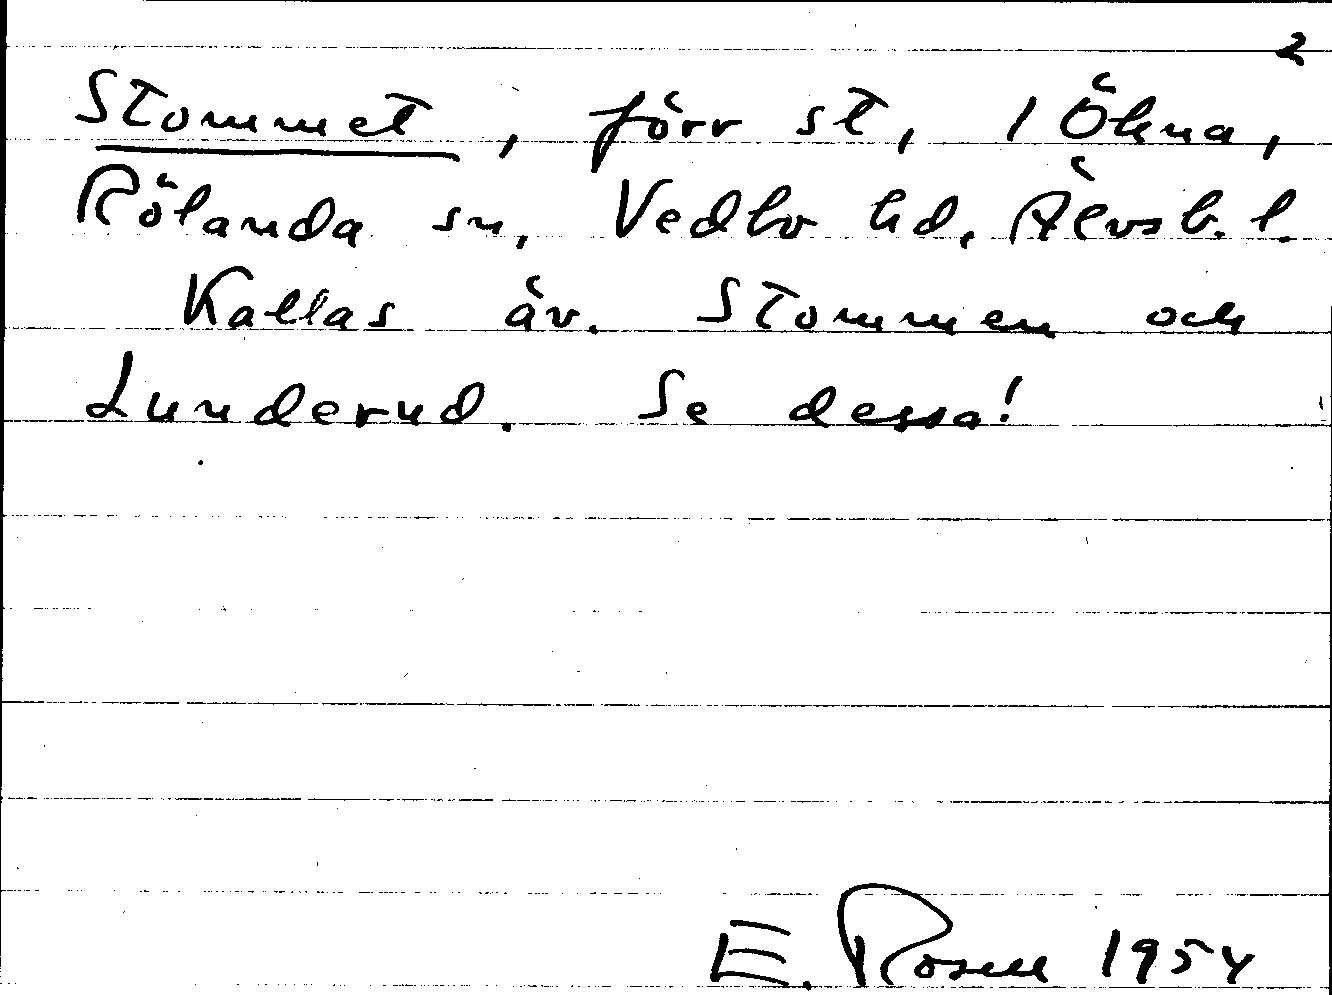 2
Stommet, förr st, i Ökna,
Rölanda sn, Vedbo hd, Älvsb. l.
Kallas äv. Stommen och
Lunderud. Se dessa!
E. Rosell 1954